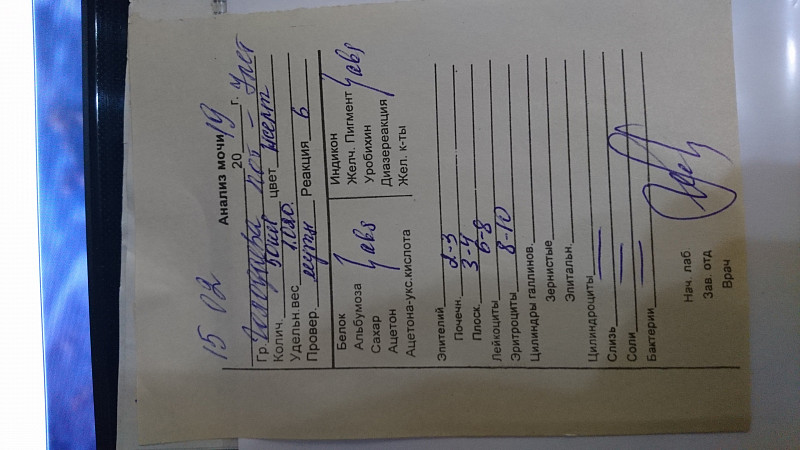 15 02
Анализ мочи
2019 г.
Гр. кот - 4 лет
Колич. 50 мл цвет желт
Удельн. вес
Провер. мутн Реакция 6
Белок
Альбумоза
Сахар
Ацетон
Ацетона-укс.кислота
abs
Индикон
Желч. Пигмент
Уробихин
Диазереакция
Жел. к-ты
abs
Эпителий
Почечн. 2-3
Плоск. 3-4
Лейкоциты 6-8
Эритроциты 8-10
Цилиндры галлинов.
Зернистые
Эпитальн.
Цилиндроциты
Слизь
Соли
Бактерии
Нач. лаб.
Зав. отд
Врач